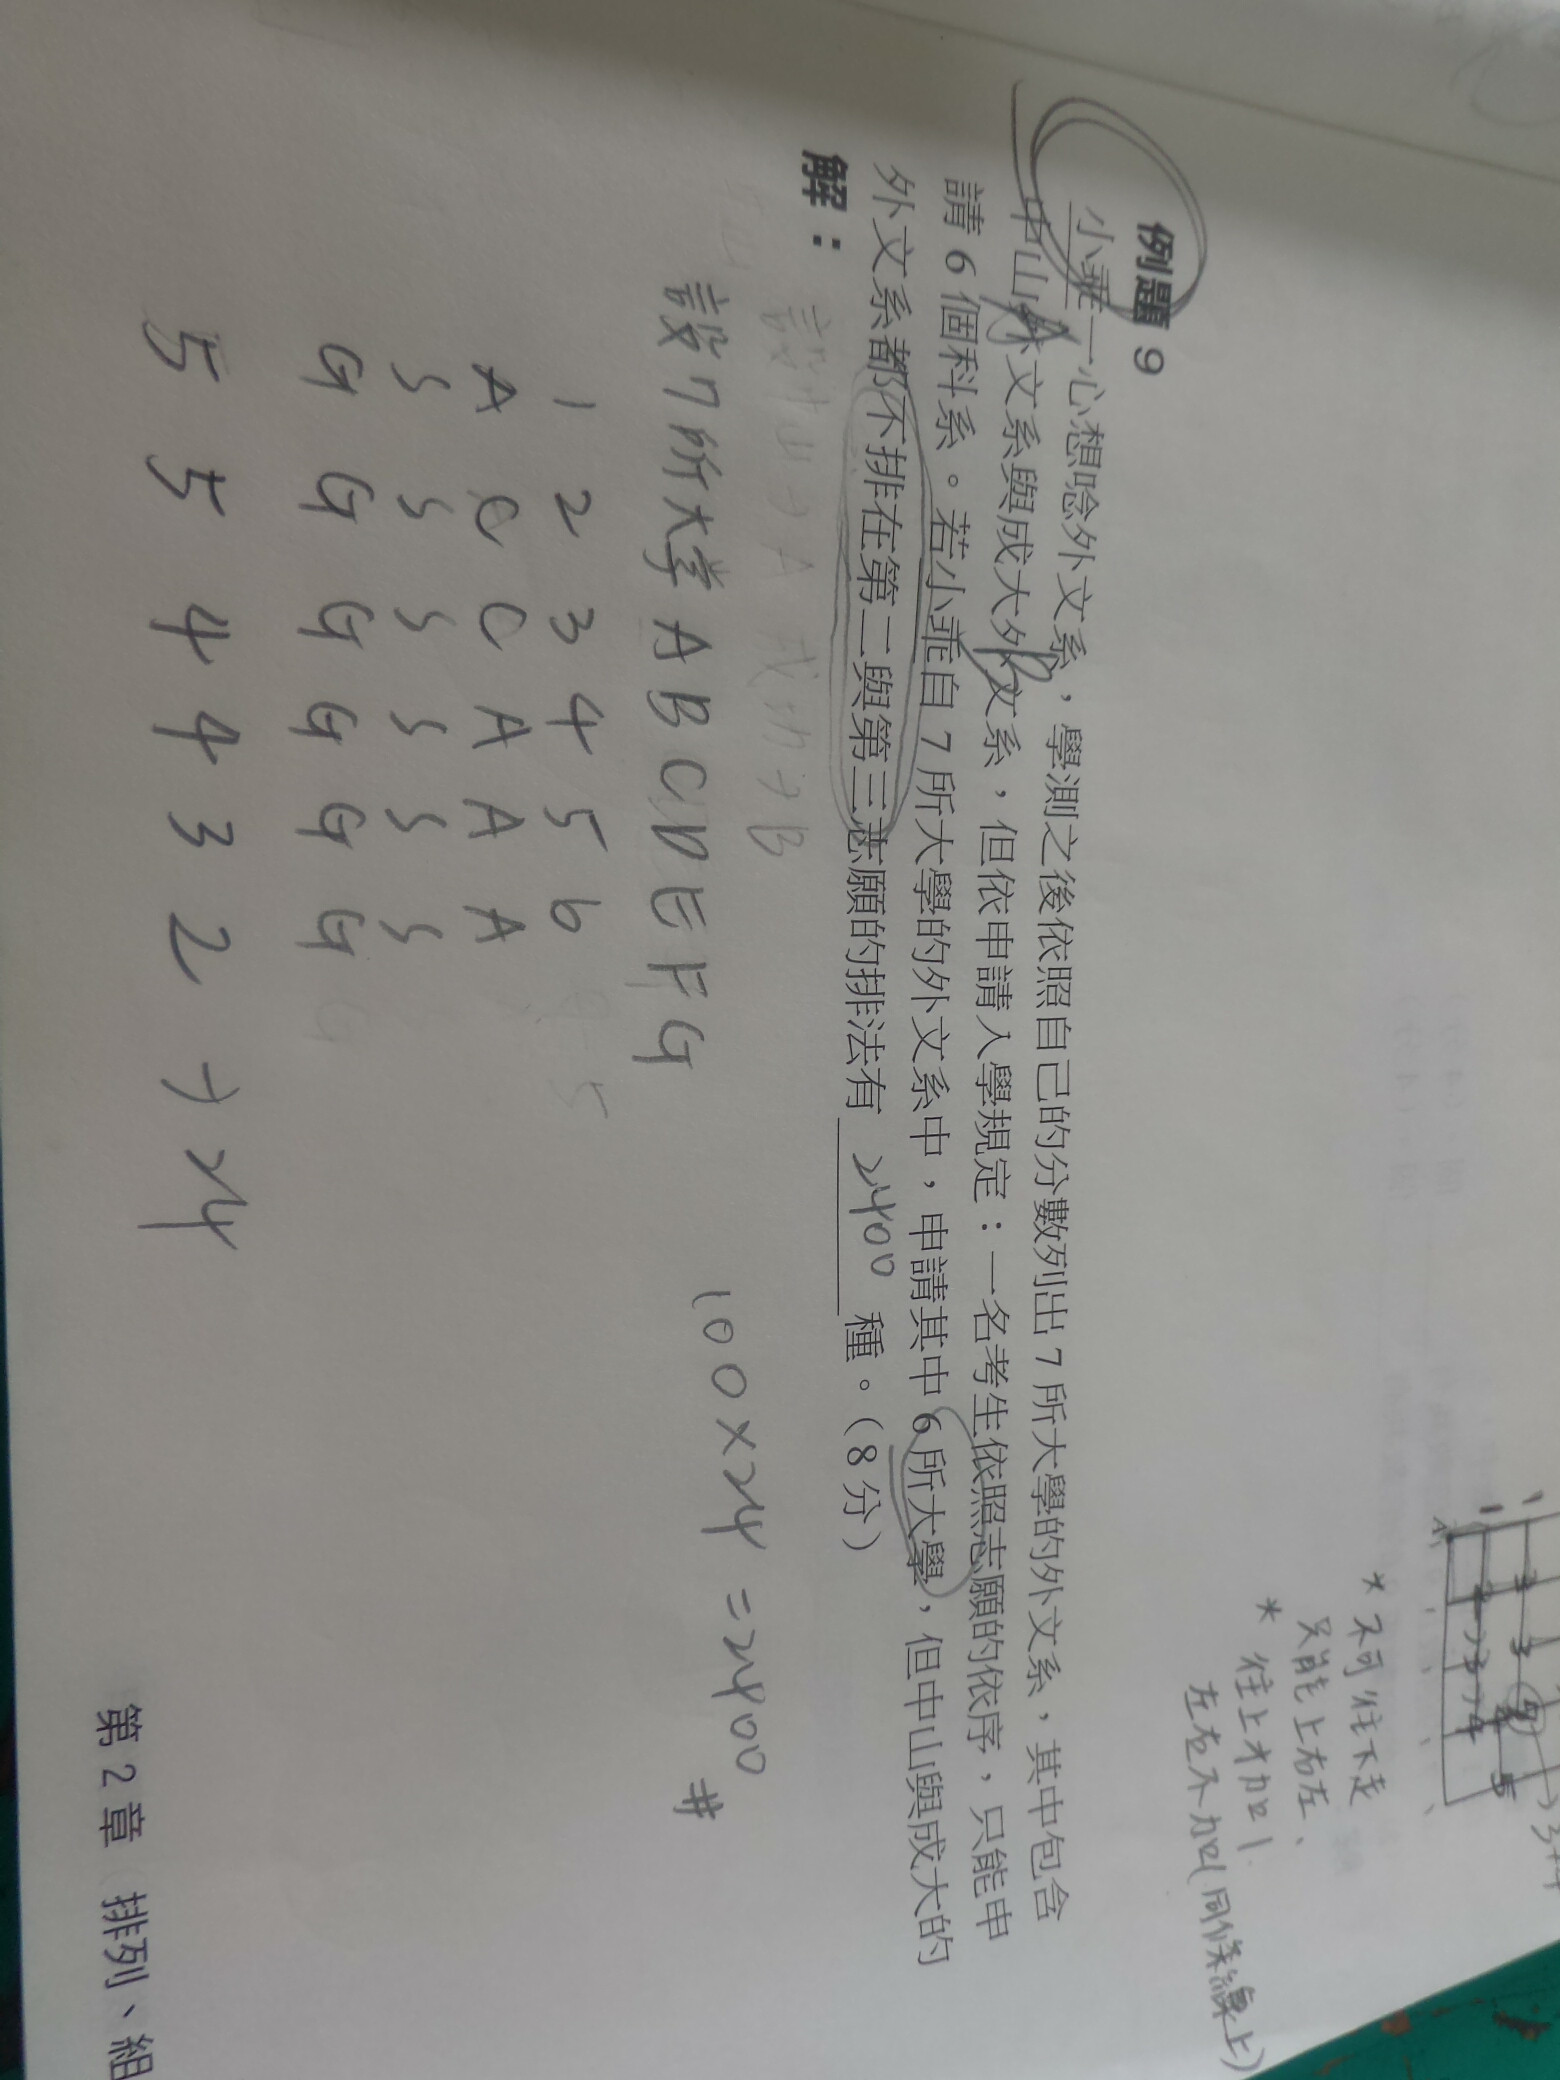 例題 9
小乖一心想唸外文系，學測之後依照自己的分數列出 7 所大學的外文系，其中包含
中山外文系與成大外文系，但依申請入學規定：一名考生依照志願的依序，只能申
請 6 個科系。若小乖自 7 所大學的外文系中，申請其中 6 所大學，但中山與成大的
外文系都不排在第二與第三志願的排法有 2400 種。（8 分）
解：
設中山→A 成功→B
設7所大学 A B C D E F G
100×24=2400 #
1 2 3 4 5 6
A C C A A A
S S S S S S
G G G G G G
5 5 4 4 3 2 → 24
* 不可往下走
只能上右左、
* 往上才加1
左右不加(同條線上)
第 2 章 排列、組